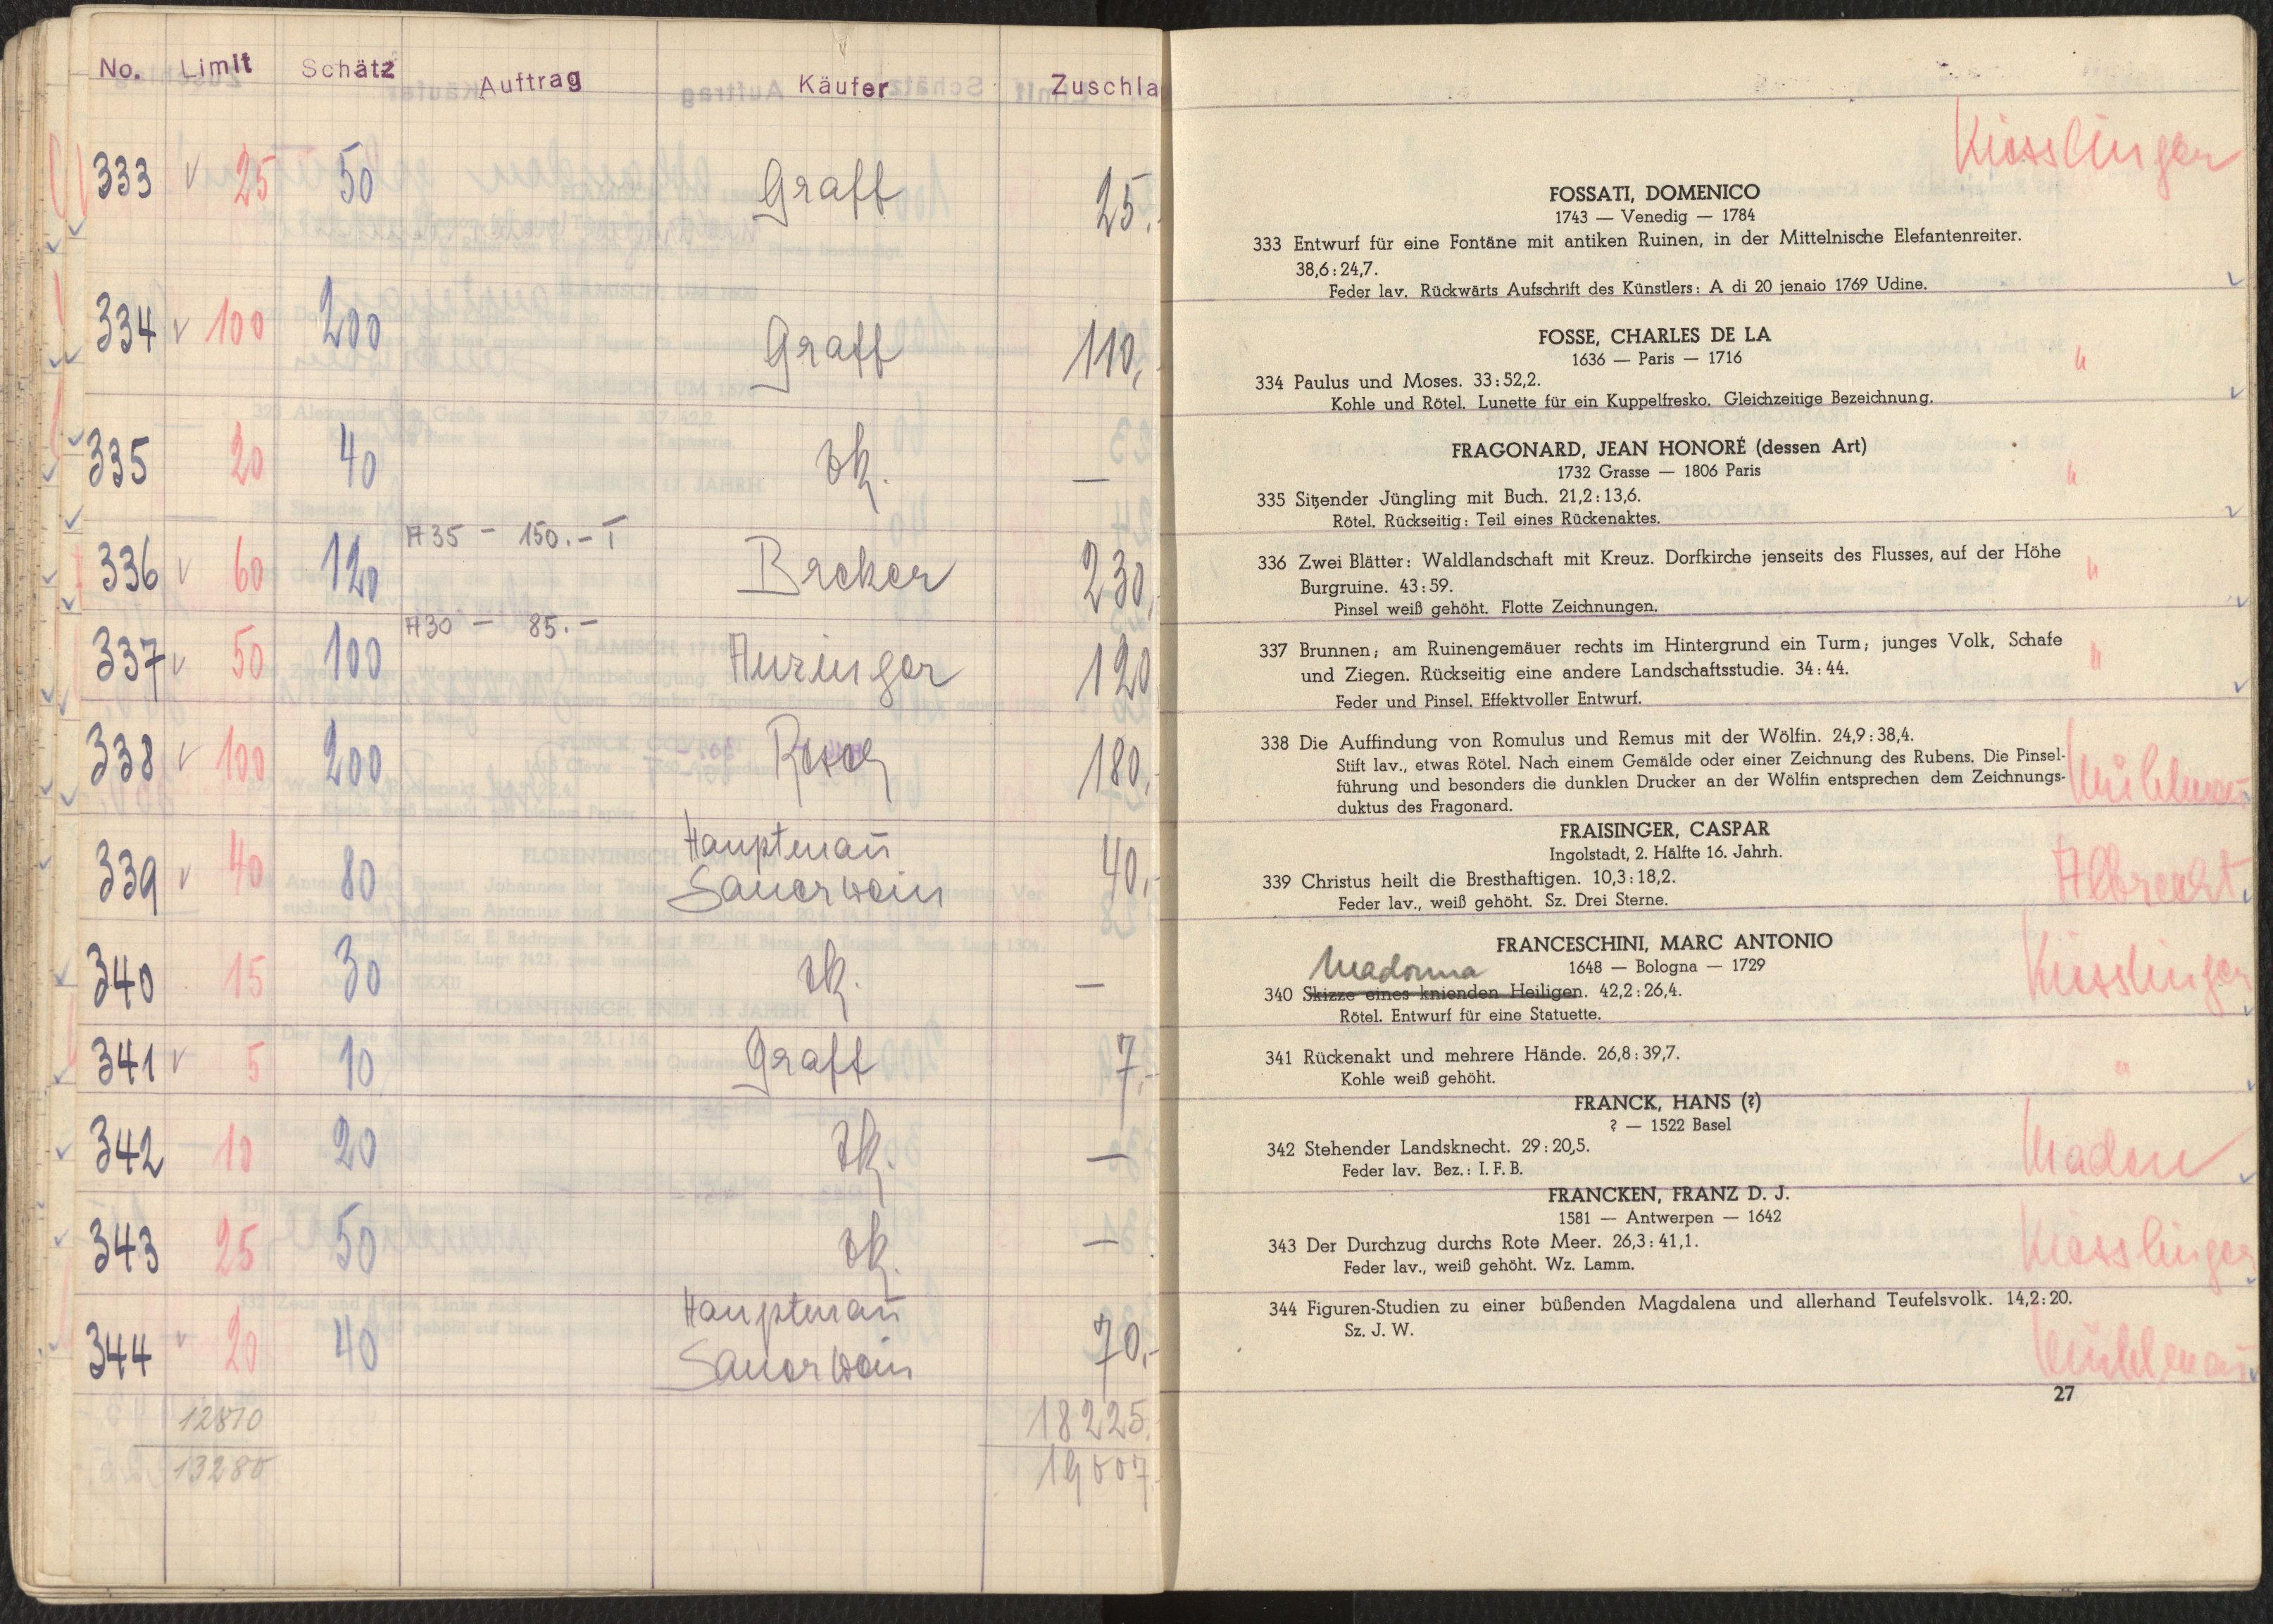 No. Limit Schätz Auftrag Käufer Zuschla
333 v 25 50 Graff 25.-
334 v 100 200 Graff 110,-
335 20 40 zk. —
A 35 - 150.- T
336 v 60 120 Breker 230,-
A 30 - 85.-
337 v 50 100 Auringer 120
338 v 100 200 180,-
339 v 40 80 Hauptmañ 40,-
Sauerwein
340 15 30 zk. —
341 v 5 10 Graff 7,-
342 10 20 zk. —
343 25 50 zk. —
344 v 20 40 Hauptmañ 70,-
Sauerwein
12870 18225.
13280 19007.
Kiesslinger
FOSSATI, DOMENICO
1743 — Venedig — 1784
333 Entwurf für eine Fontäne mit antiken Ruinen, in der Mittelnische Elefantenreiter.
38,6 : 24,7.
Feder lav. Rückwärts Aufschrift des Künstlers: A di 20 jenaio 1769 Udine.
FOSSE, CHARLES DE LA
1636 — Paris — 1716
"
334 Paulus und Moses. 33 : 52,2.
Kohle und Rötel. Lunette für ein Kuppelfresko. Gleichzeitige Bezeichnung.
FRAGONARD, JEAN HONORÉ (dessen Art)
1732 Grasse — 1806 Paris
"
335 Sitzender Jüngling mit Buch. 21,2 : 13,6.
Rötel. Rückseitig: Teil eines Rückenaktes.
336 Zwei Blätter: Waldlandschaft mit Kreuz. Dorfkirche jenseits des Flusses, auf der Höhe "
Burgruine. 43 : 59.
Pinsel weiß gehöht. Flotte Zeichnungen.
337 Brunnen; am Ruinengemäuer rechts im Hintergrund ein Turm; junges Volk, Schafe "
und Ziegen. Rückseitig eine andere Landschaftsstudie. 34 : 44.
Feder und Pinsel. Effektvoller Entwurf.
338 Die Auffindung von Romulus und Remus mit der Wölfin. 24,9 : 38,4.
Stift lav., etwas Rötel. Nach einem Gemälde oder einer Zeichnung des Rubens. Die Pinsel-
führung und besonders die dunklen Drucker an der Wölfin entsprechen dem Zeichnungs- Mühlmañ
duktus des Fragonard.
FRAISINGER, CASPAR
Ingolstadt, 2. Hälfte 16. Jahrh.
339 Christus heilt die Bresthaftigen. 10,3 : 18,2. Albrecht
Feder lav., weiß gehöht. Sz. Drei Sterne.
FRANCESCHINI, MARC ANTONIO
1648 — Bologna — 1729
Madonna Kiesslinger
340 Skizze eines knienden Heiligen. 42,2 : 26,4.
Rötel. Entwurf für eine Statuette.
341 Rückenakt und mehrere Hände. 26,8 : 39,7. "
Kohle weiß gehöht.
FRANCK, HANS (?)
? — 1522 Basel
342 Stehender Landsknecht. 29 : 20,5.
Feder lav. Bez.: I. F. B.
FRANCKEN, FRANZ D. J.
1581 — Antwerpen — 1642
343 Der Durchzug durchs Rote Meer. 26,3 : 41,1. Kiesslinger
Feder lav., weiß gehöht. Wz. Lamm.
344 Figuren-Studien zu einer büßenden Magdalena und allerhand Teufelsvolk. 14,2 : 20.
Sz. J. W. Mühlmañ
27